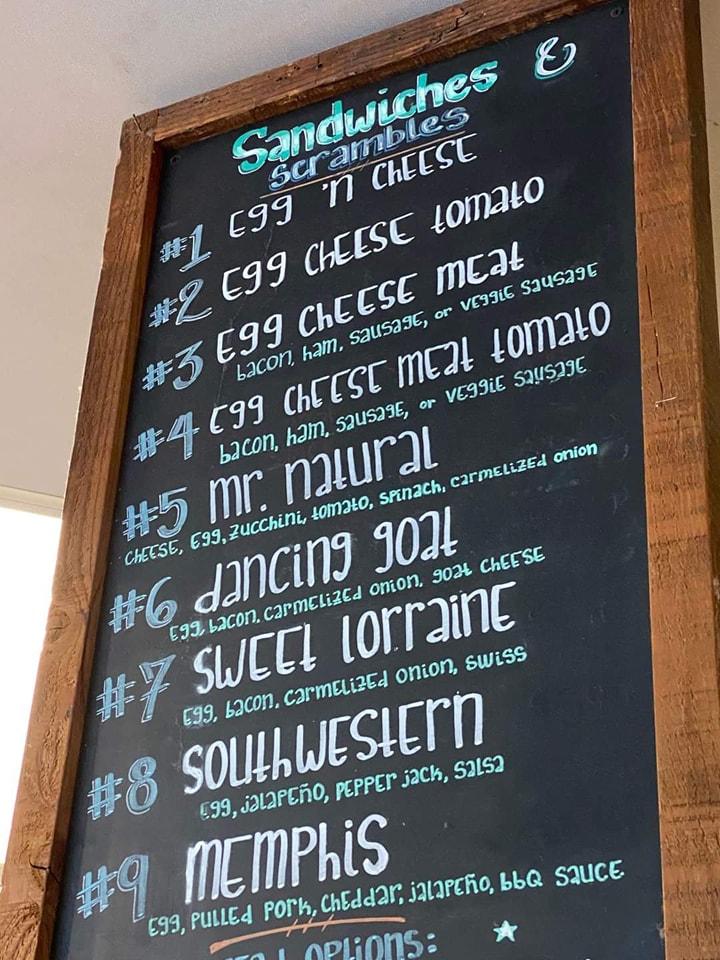 Sandwiches &
scrambles
#1 Egg 'n cheese
#2 Egg cheese tomato
#3 Egg cheese meat
bacon, ham, sausage, or veggie sausage
#4 Egg cheese meat tomato
bacon, ham, sausage, or veggie sausage
#5 mr. natural
cheese, egg, zucchini, tomato, spinach, carmelized onion
#6 dancing goat
Egg, bacon, carmelized onion, goat cheese
#7 sweet lorraine
Egg, bacon, carmelized onion, swiss
#8 southwestern
Egg, jalapeño, pepper jack, salsa
#9 memphis
Egg, pulled pork, cheddar, jalapeño, bbq sauce
options: